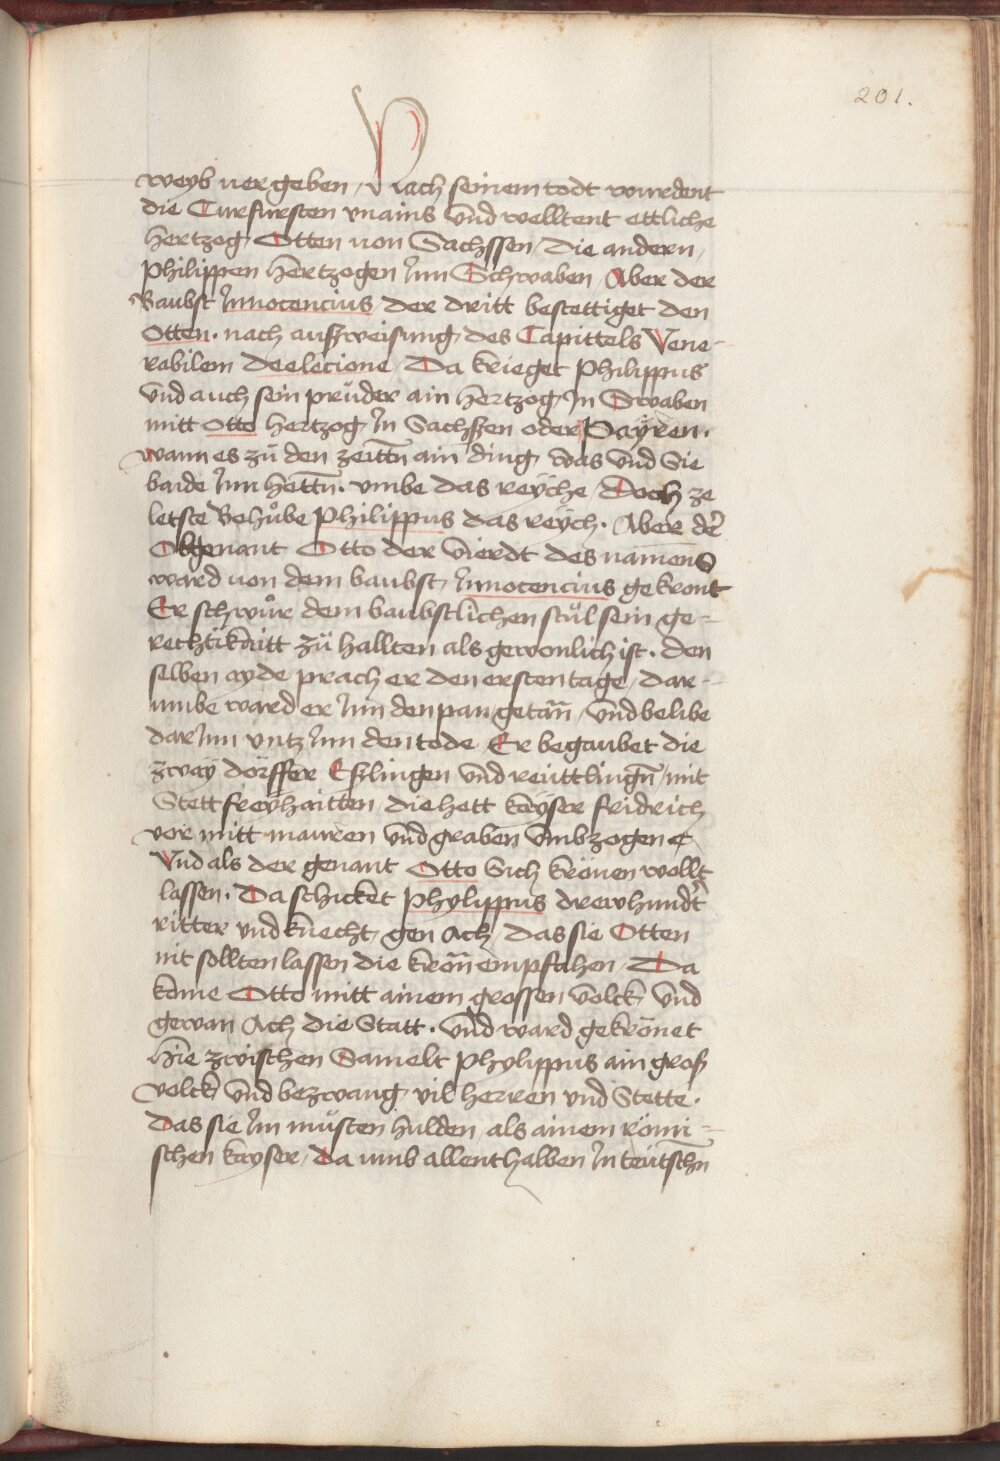 201.
weyb uergeben / Nach seinem todt wurdent
die Curfursten vnains vnd welltent ettliche
hertzog Otten von Sachssen / die andern /
Philippen hertzogen Jnn Schwaben / Aber der
Baubst Jnnocencius / der dritt bestettiget den
Otten · nach auszweisung des Capittels Vene-
rabilem deelecione / Da krieget Philippus
vnd auch sein průder ain hertzog Jn Swaben
mitt otto hertzog Jn Sachszen oder Bayren ·
wann es zů den zeittn̄ ain ding was vnd Sie
baide Jnn hettn̄ · vmbe das reyche / Doch ze
letste Behůbe Philippus das reych · Aber der
Obgenant Otto der vierdt des namens
ward von dem baubst / Jnnocencius gekront
Er schwůr dem baubstlichen stůl sein ge-
rechtikaitt zů hallten als gewonlich ist · den
selben ayde prach er den ersten tage / dar-
umbe ward er Jnn den pan getan̄ / vnd belibe
darJnn vntz Jnn den tode Er begaubet die
zway dörffer Eszlingen vnd reuttlingn̄ / mit
Stett freyhaitten / die hett kayser fridrich
vor mitt mauren vnd graben vmbzogen
Vnd als der genant Otto Sich krönen wollt
lassen · Da schicket Phylippus drewhundt̄
ritter vnd knecht / gen Ach / das sie Otten
nit sollten lassen die kron̄ empfahen / Da
kome Otto mitt ainem grossen volck vnd
gewan Ach die Statt · vnd ward gekrönet
hie zwischen Samelt Phylippus ain gross
volck vnd bezwang vil herren vnd Stette ·
Das sie Jm müsten hulden als ainem römi-
schen kayser / Da umb allenthalben Jn teutschn̄